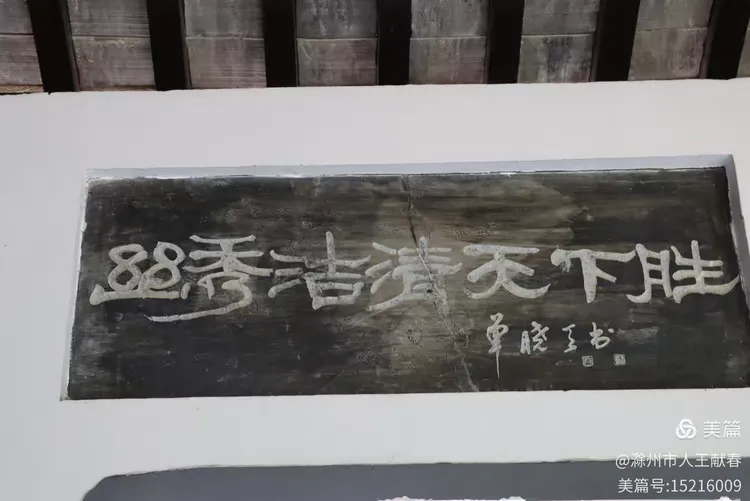 幽秀洁清天下胜
单晓天书
美篇
@滁州市人王献春
美篇号:15216009